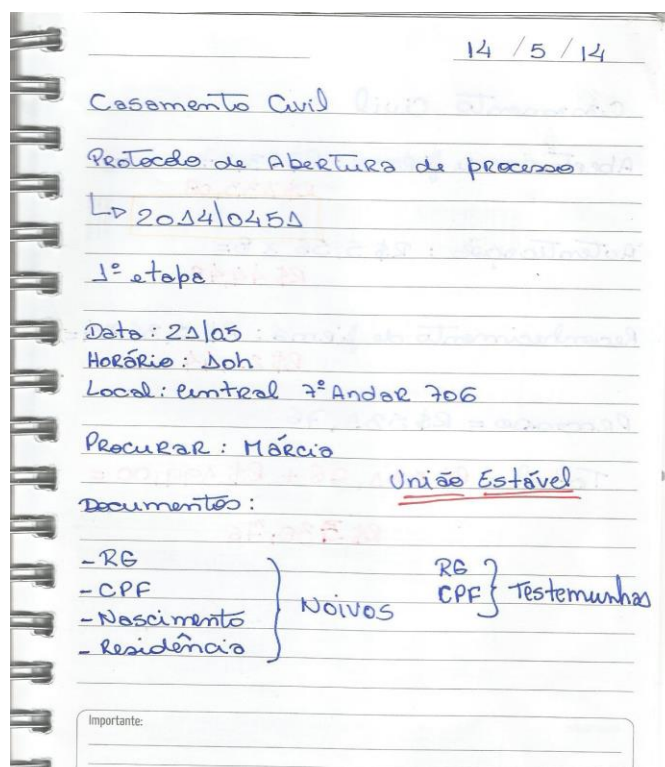 14 / 5 / 14
Casamento Civil
Protocolo de Abertura de processo
↳ 2014/0451
1ª etapa
Data: 21/05
Horário: 10h
Local: Central 7º Andar 706
Procurar: Márcia
União Estável
Documentos:
- RG
- CPF
- Nascimento
- Residência
} Noivos
RG
CPF } Testemunhas
Importante: